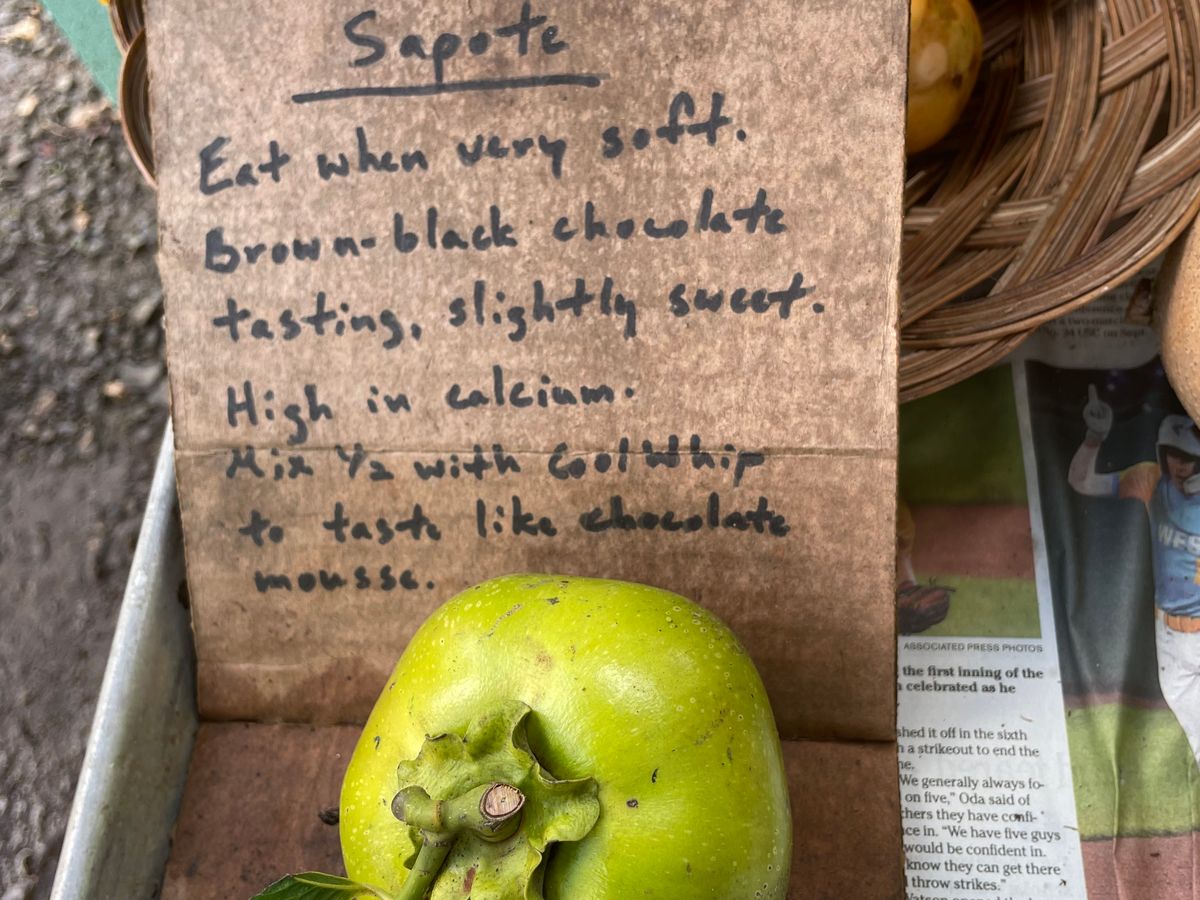 Sapote
Eat when very soft.
Brown-black chocolate
tasting, slightly sweet.
High in calcium.
Mix 1/2 with Cool Whip
to taste like chocolate
mousse.
ASSOCIATED PRESS PHOTOS
the first inning of the
celebrated as he
shed it off in the sixth
a strikeout to end the
We generally always fo-
on five," Oda said of
they have confi-
in. "We have five guys
would be confident in.
know they can get there
throw strikes."